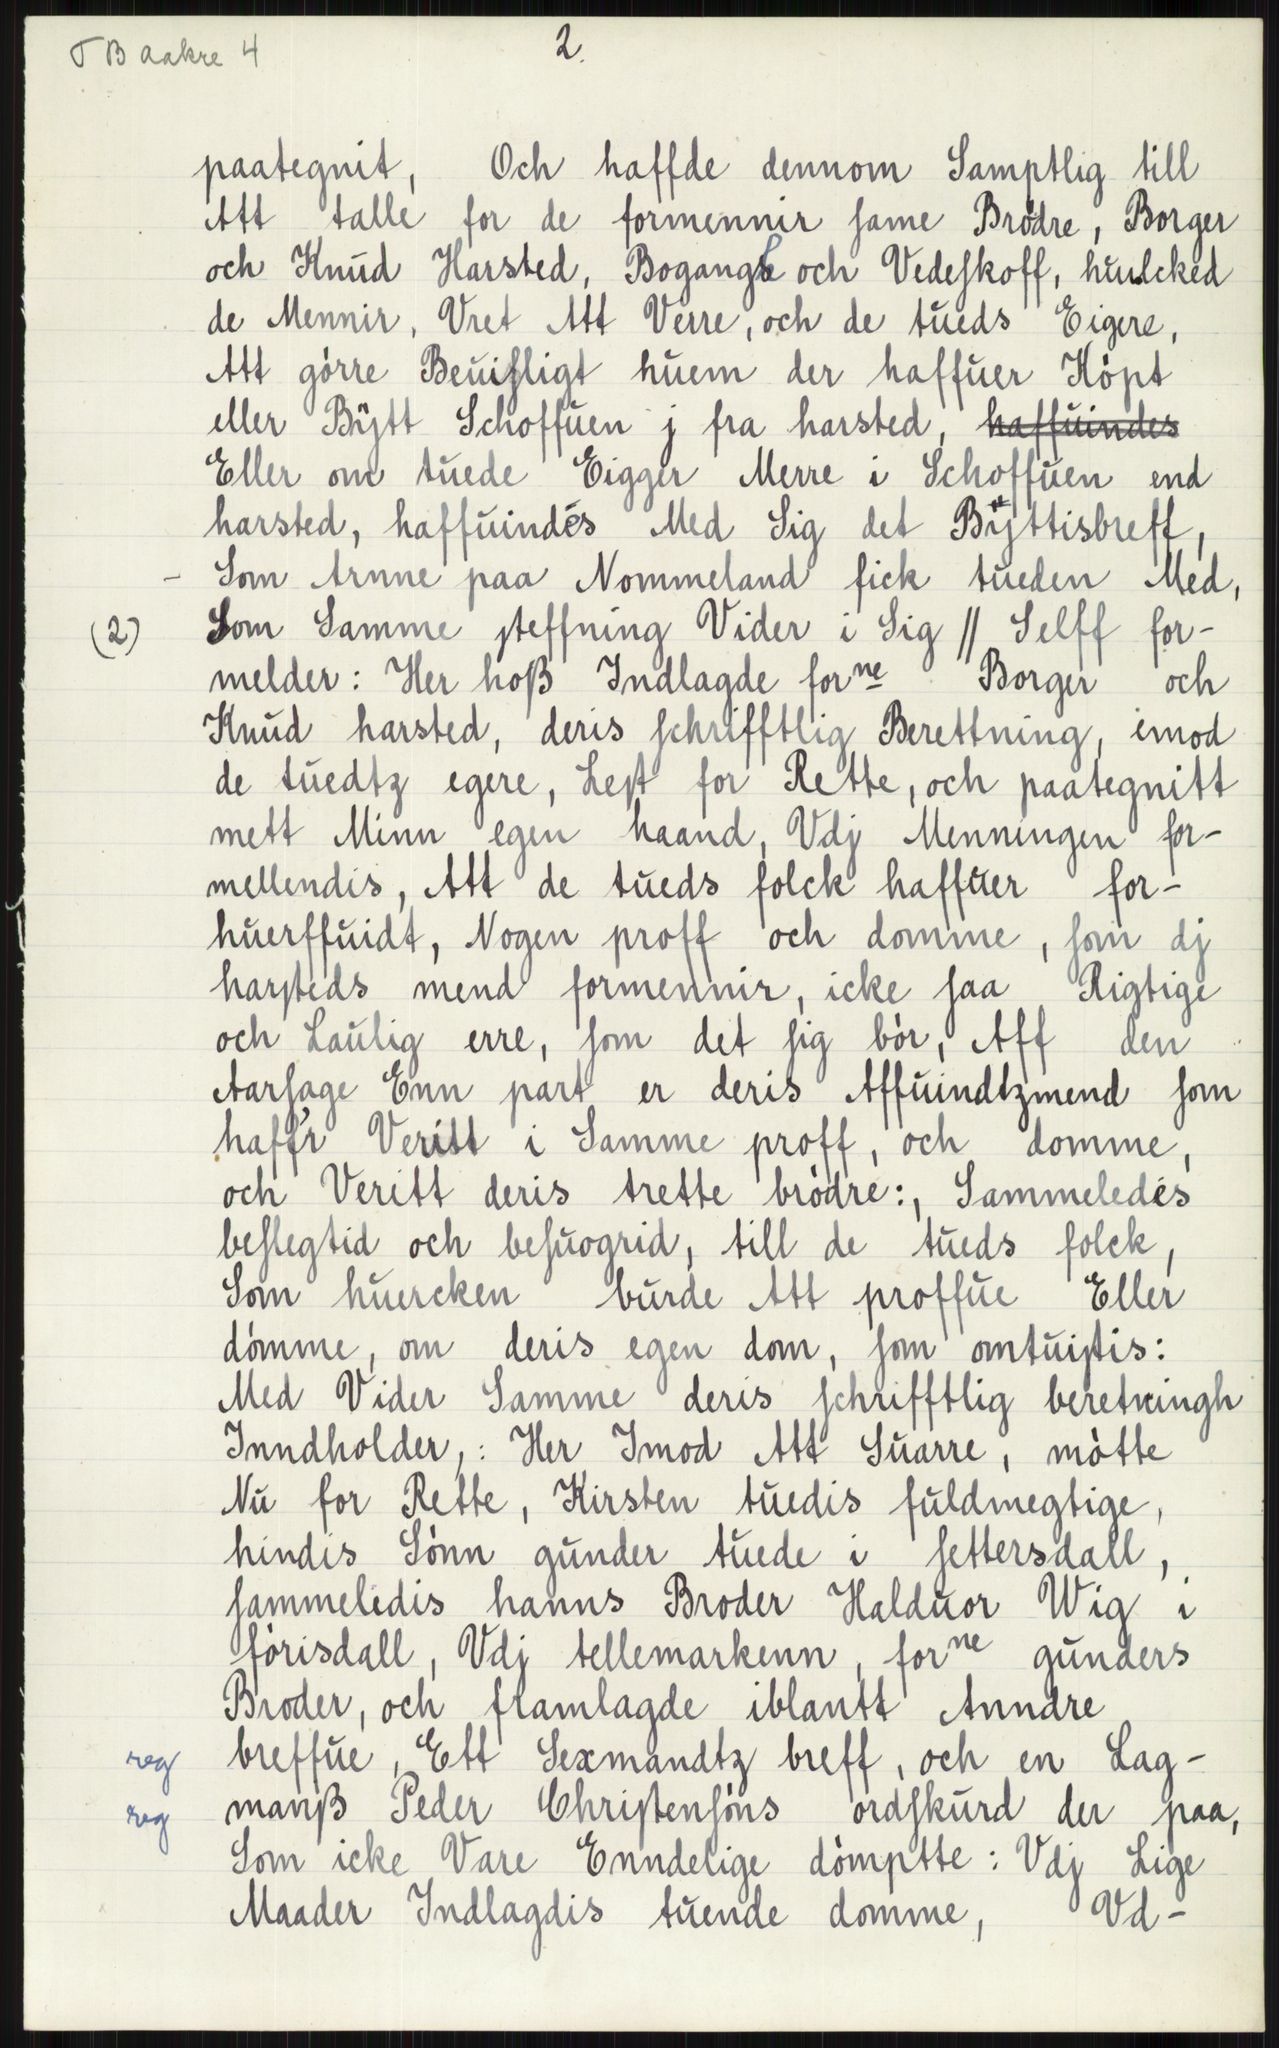 TB Aakre 4
2.
paategnit, Och haffde dennom Samptlig till
Att talle for de formennir same Brødre, Borger
och Knud Harsted, Bogangß och Vedeskoff, huulcked
de Mennir, Vret Att Verre, och de tueds Eigere,
Att görre Beuisligt huem der haffuer Köpt
eller Bÿtt Schoffuen j fra harsted, haffuindes
Eller om tuede Eigger Merre i Schoffuen end
harsted, haffuindés Med Sig det Bÿttisbreff,
- Som Arnne paa Nommeland fick tueden Med,
(2) Som Samme steffning Vider i Sig // Selff for-
melder: Her hoß Indlagde forne Borger och
Knud harsted, deris schrifftlig Berettning, imod
de tuedtz egere, Lest for Rette, och paategnitt
mett Minn egen haand, Vdj Menningen for-
mellendis, Att de tueds folck haffuer for-
huerffuidt, Nogen proff och domme, som dj
harsteds mend formennir, icke saa Rigtige
och Laulig erre, som det sig bör, Aff den
Aarsage Enn part er deris Affuindtzmend som
haff'r Veritt i Samme proff, och domme,
och Veritt deris trette brödre:, Sammeledés
beslegtid och besuogrid, till de tueds folck,
Som huercken burde Att proffue Eller
dömme, om deris egen dom, som omtuistis:
Med Vider Samme deris schrifftlig beretningh
Inndholder,: Her Imod Att Suarre, mötte
Nu for Rette, Kirsten tuedis fuldmegtige,
hindis Sönn gunder tuede i settersdall,
sammeledis hanns Broder Halduor Wig i
förisdall, Vdj tellemarkenn, forne gunders
Broder, och framlagde iblantt Anndre
reg breffue, Ett Sexmandtz breff, och en Lag-
reg manß Peder Christensöns ordskurd der paa,
Som icke Vare Enndelige dömptte: Vdj Lige
Maader Indlagdis tuende domme, Vd-